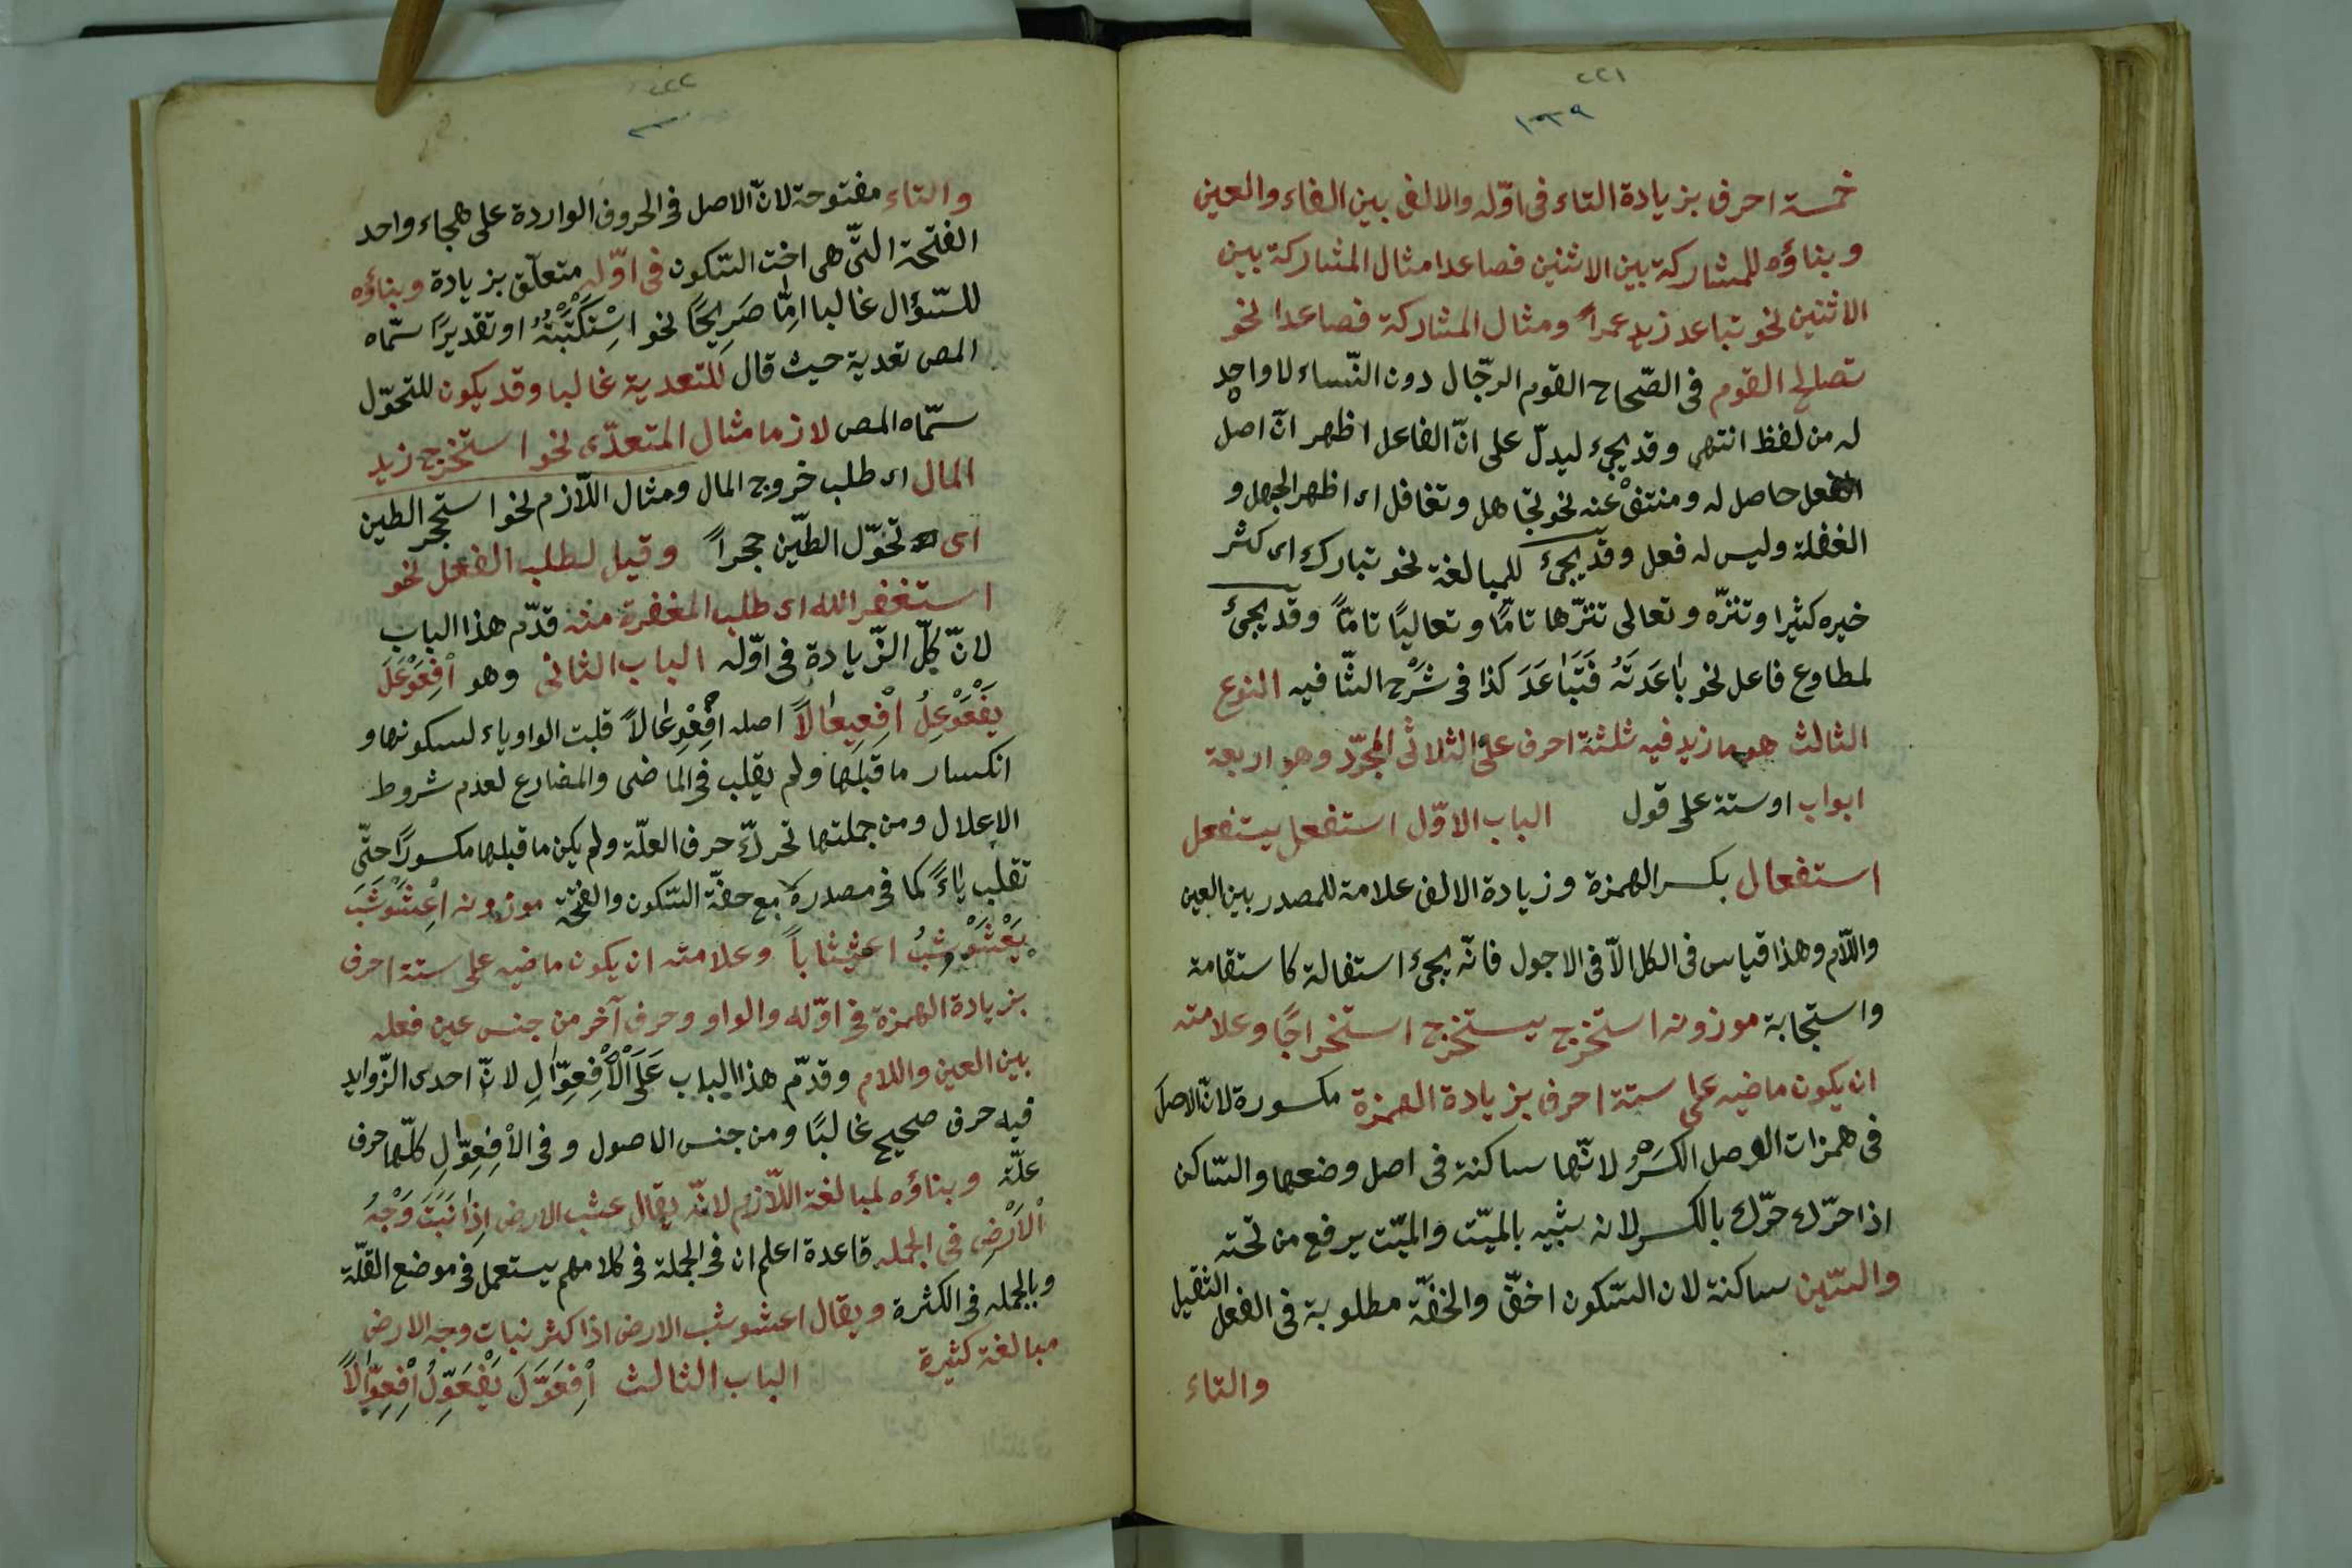 ٢٢١
١٣٩
خمسة احرف بزيادة التاء فى اوّله والالف بين الفاء والعين
وبناؤه للمشاركة بين الاثنين فصاعدا مثال المشاركة بين
الاثنين نحو تباعد زيد عمراً ومثال المشاركة فصاعدا نحو
تصالح القوم فى الصّحاح القوم الرجّال دون النّساء لا واحد
له من لفظ انتهى وقد يجئ ليدلّ على انّ الفاعل اظهر انّ اصل
الفعل حاصل له ومنتفْ عنه نحو تجاهل وتغافل اى اظهر الجهل و
الغفلة وليس له فعل وقد يجئ للمبالغة نحو تبارك اى كثر
خيره كثيرا وتنزّه وتعالى تنزّها تامًّا وتعاليًا تامّاً وقد يجئ
لمطاوع فاعل نحو بَاعَدَتَهُ فَتَبَاعَدَ كذا فى شَرْح الشّافيه النوع
الثالث هو ما زيد فيه ثلثة احرف على الثلاثى المجرّد وهو اربعة
ابواب اوستة على قول الباب الاوّل استفعل يستفعل
استفعال بكسر الهمزة وزيادة الالف علامة للمصدر بين العين
واللّام وهذا قياس فى الكل الّا فى الاجول فانّه يجئ استفالة كاستقامة
واستجابة موزونه استخرج يستخرج استخراجًا وعلامته
ان يكون ماضيه على ستة احرف بزيادة الهمزة مكسورة لانّ الاصل
فى همزات الوصل الكَسْرُ لانّها ساكنة فى اصل وضعها والسّاكن
اذا حرّك حرّك بالكسر لانه شبيه بالميّت والميّت يرفع من تحته
والسّين ساكنة لان السّكون اخفّ والخفّة مطلوبة فى الفعل الثقيل
والتاء
٢٢٢
والتاء مفتوحة لانّ الاصل فى الحروف الواردة على هجاء واحد
الفتحة التّى هى اخت السّكون فى اوّله متعلّق بزيادة وبناؤه
للسّؤال غالبا امّا صَرِيحًا نحو اسْتَكْتَبْتُهُ او تقديرًا سمّاه
المص تعدية حيث قال للمتعدية غالبا وقد يكون للتحوّل
سمّاه المص لازما مثال المتعدّى نحو استخرج زيد
المال اى طلب خروج المال ومثال اللّازم نحو استحجر الطين
اى تحوّل الطّين حجراً وقيل لطلب الفعل نحو
استغفر الله اى طلب المغفرة منه قدّم هذا الباب
لانّ كلّ الزّيادة فى اوّله الباب الثانى وهو اِفْعَوْعَلَ
يَفْعَوْعِلُ اِفْعِيعَالاً اصله اِفْعِوْعَالاً قلبت الواو ياء لسكونها و
انكسار ما قبلها ولم يقلب فى الماضى والمضارع لعدم شروط
الاعلال ومن جملتها تحرّك حرف العلّة ولم يكن ما قبلها مكسورًا حتّى
تقلب ياءً كما فى مصدره مع خفّة السّكون والفتحة موزونه اِعْشَوْشَبَ
يَعْشَوْشِبُ اعشيشاباً وعلامته ان يكون ماضيه على ستة احرف
بزيادة الهمزة فى اوّله والواو وحرف آخر من جنس عين فعله
بين العين واللام وقدّم هذا الباب عَلَى الْاِفْعِوَّالِ لانّ احدى الزّوايد
فيه حرف صحيح غالبًا ومن جنس الاصول وفى الْاِفْعِوَّالِ كلّها حرف
علّة وبناؤه لمبالغة اللّازم لانّه يقال عشب الارض اِذَا نَبَتَ وَجْهُ
الْاَرْضِ فى الجمله قاعدة اعلم ان فى الجملة فى كلامهم يستعمل فى موضع القلّة
وبالجمله فى الكثرة ويقال اعشوشب الارض اذا كثر نبات وجه الارض
مبالغة كثيرة الباب الثالث اِفْعَوَّلَ يَفْعَوِّلُ اِفْعِوَّالاً